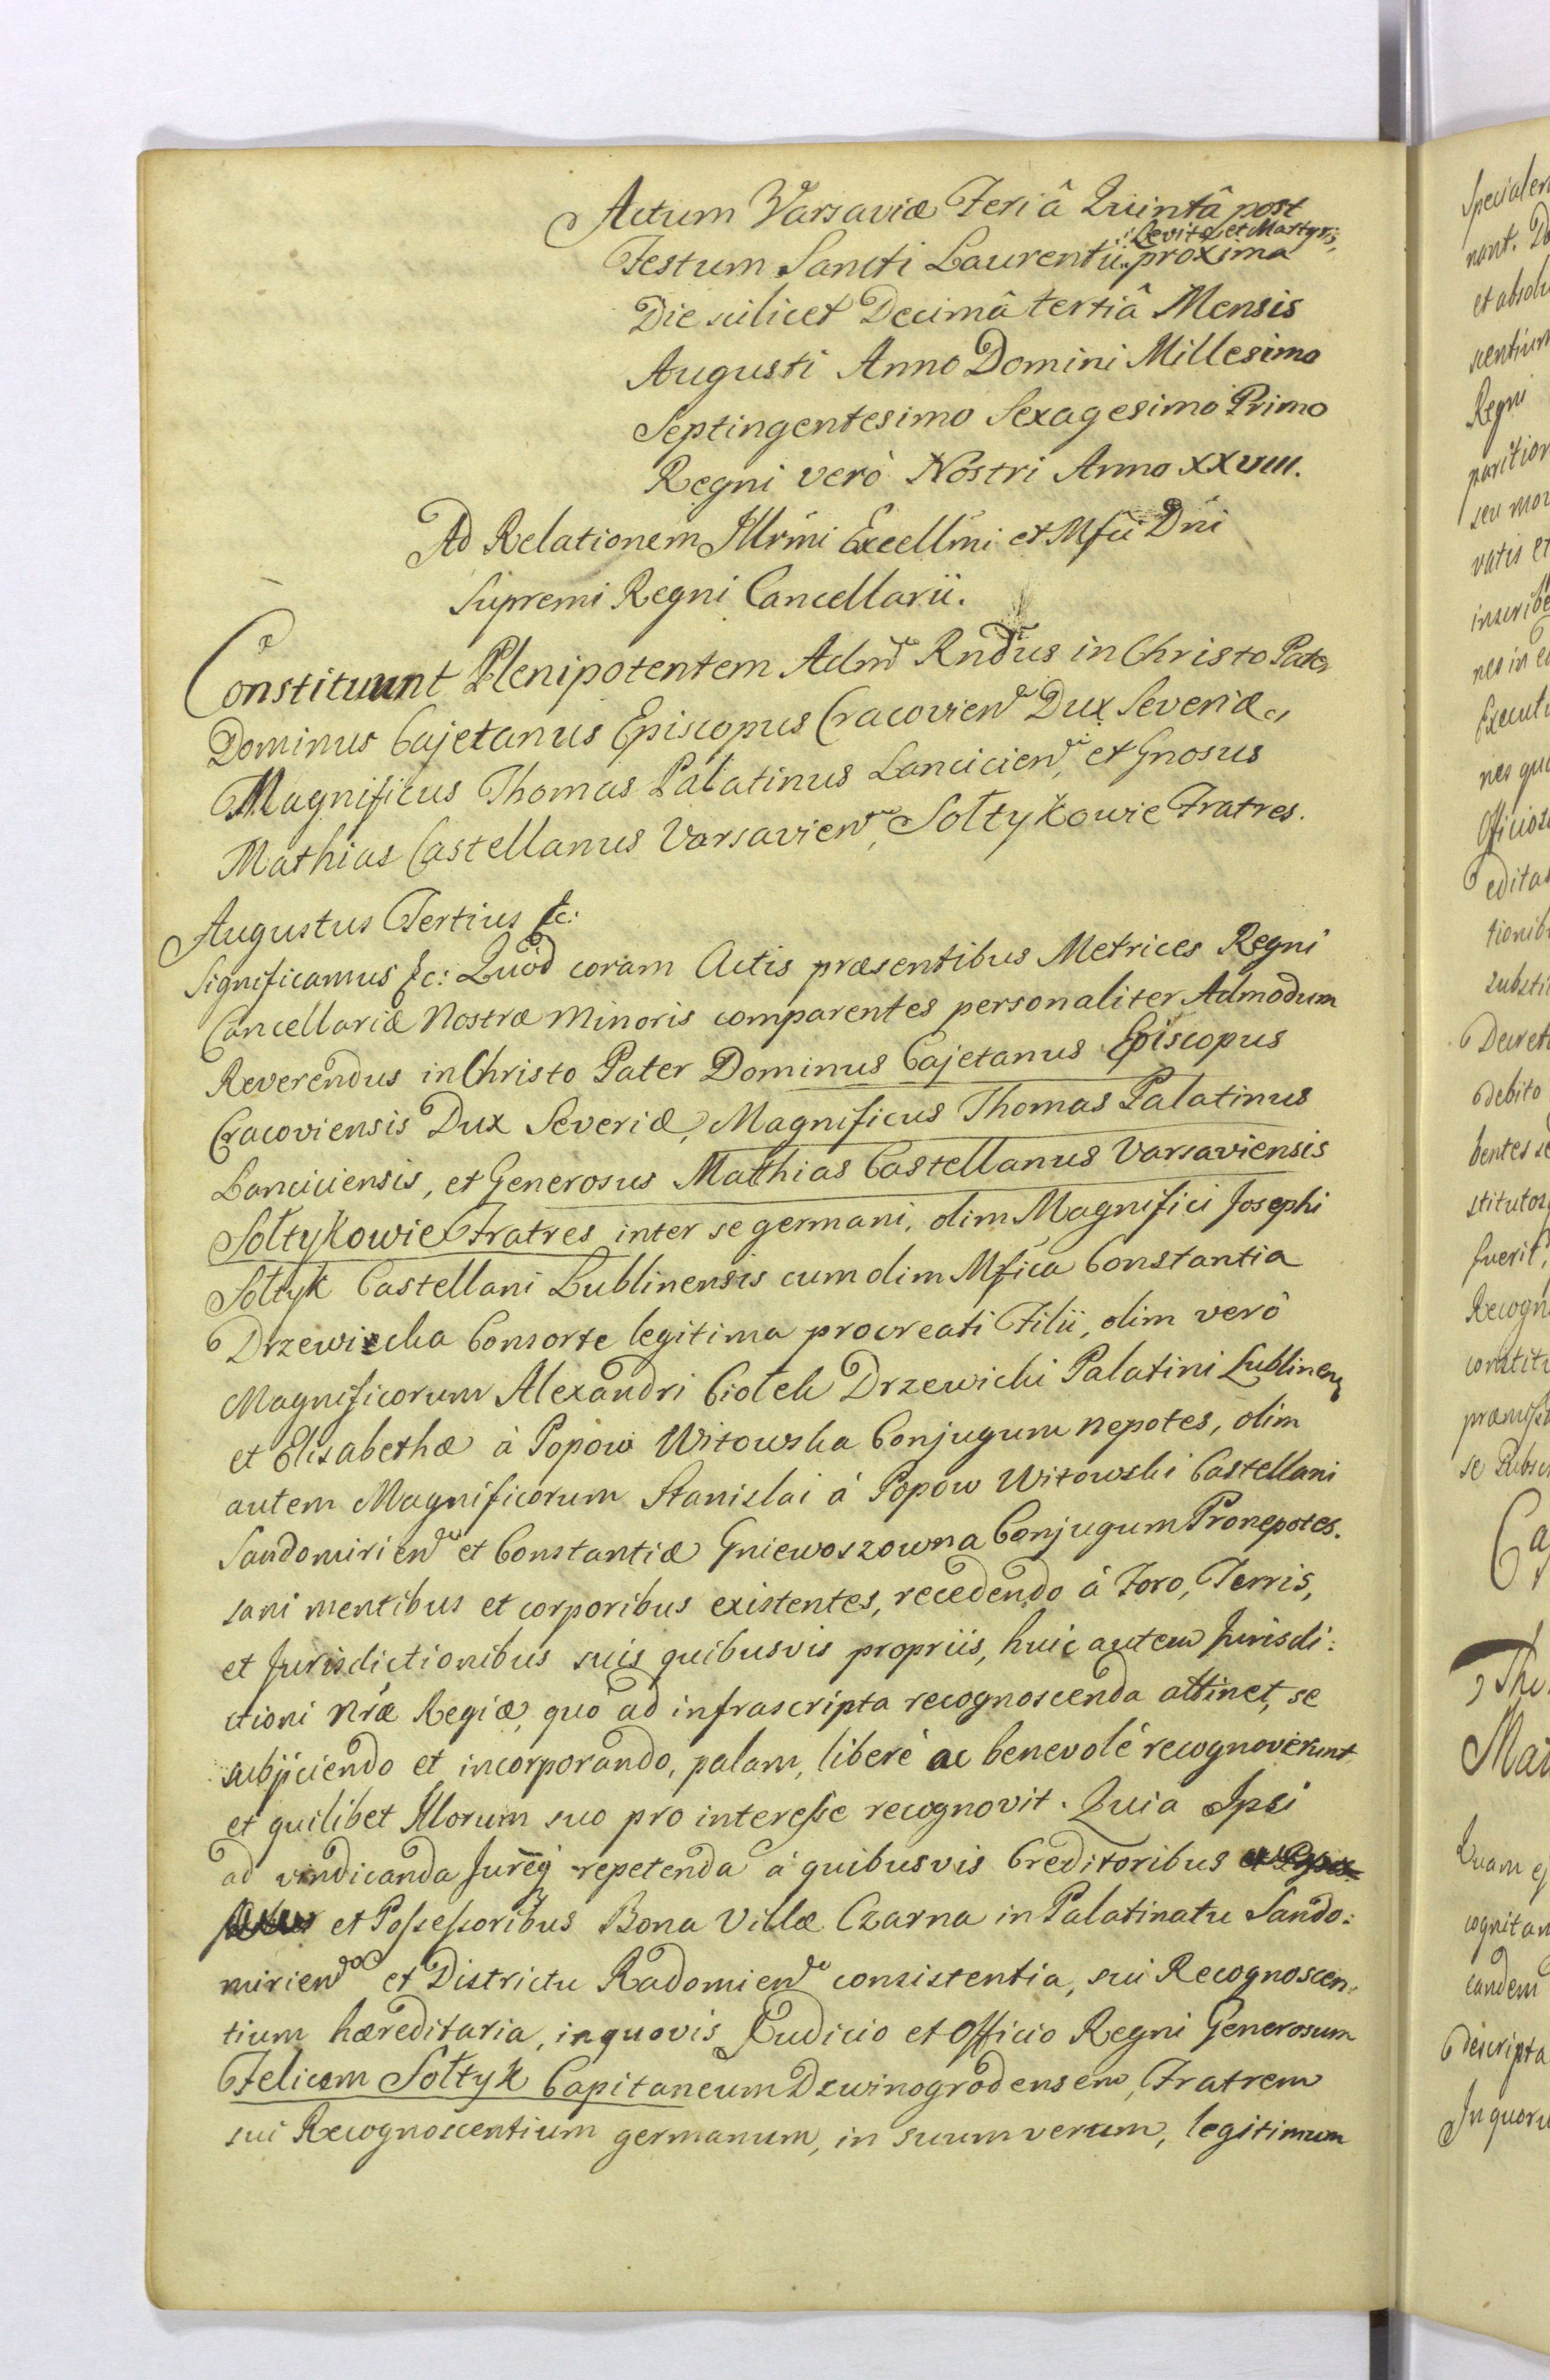 Actum Varsaviæ Feriâ Quintâ post
Festum Sancti Laurentii :Levitæ et Martyris: proxima
Die scilicet Decimâ tertiâ Mensis
Augusti Anno Domini Millesimo
Septingentesimo Sexagesimo Primo
Regni verò Nostri Anno XXVIII.
Ad Relationem Illrmi Excellmi et Mfci Dni
Supremi Regni Cancellarii.
Constituunt Plenipotentem Admd Rndus in Christo Pater
Dominus Cajetanus Episcopus Cracovien Dux Severiæ,
Magnificus Thomas Palatinus Lancicien, et Gnosus
Mathias Castellanus Varsavien, Sołtykowie Fratres.
Augustus Tertius &c:
Significamus &c: Quod coram Actis præsentibus Metrices Regni
Cancellariæ Nostræ Minoris comparentes personaliter Admodum
Reverendus in Christo Pater Dominus Cajetanus Episcopus
Cracoviensis Dux Severiæ, Magnificus Thomas Palatinus
Lanciciensis, et Generosus Matthias Castellanus Varsaviensis
Sołtykowie Fratres inter se germani, olim Magnifici Josephi
Sołtyk Castellani Lublinensis cum olim Mfica Constantia
Drzewicka Consorte legitima procreati Filii, olim verò
Magnificorum Alexandri Ciołek Drzewicki Palatini Lublinen
et Elisabethæ à Popow Witowska Conjugum nepotes, olim
autem Magnificorum Stanislai á Popow Witowski Castellani
Sandomirien et Constantiæ Gniewoszowna Conjugum Pronepotes.
sani mentibus et corporibus existentes, recedendo á Foro, Terris,
et Jurisdictionibus suis quibusvis propriis, huic autem Jurisdi:
ctioni Nræ Regiæ, quo ad infrascripta recognoscenda attinet, se
subjiciendo et incorporando, palam, liberè ac benevolè recognoverunt
et quilibet Illorum suo pro interesse recognovit. Quia Ipsi
ad vindicanda Jureq repetenda á quibusvis Creditoribus
et Possessoribus Bona Villæ Czarna in Palatinatu Sando:
mirien et Districtu Radomien consistentia, sui Recognoscen:
tium hæreditaria, in quovis Judicio et Officio Regni Generosum
Felicem Sołtyk Capitaneum Dzwinogrodensem, Fratrem
sui Recognoscentium germanum, in suum verum, legitimum